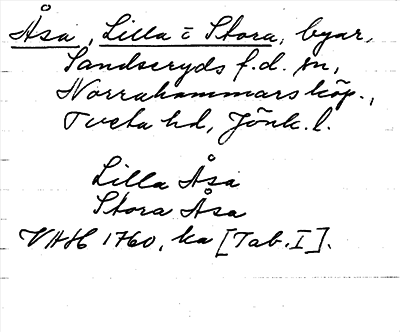 Åsa, Lilla o Stora, byar,
Sandseryds f.d. sn,
Norrahammars köp.,
Tveta hd, Jönk. l.
Lilla Åsa
Stora Åsa
VAH 1760, ka [Tab. I].